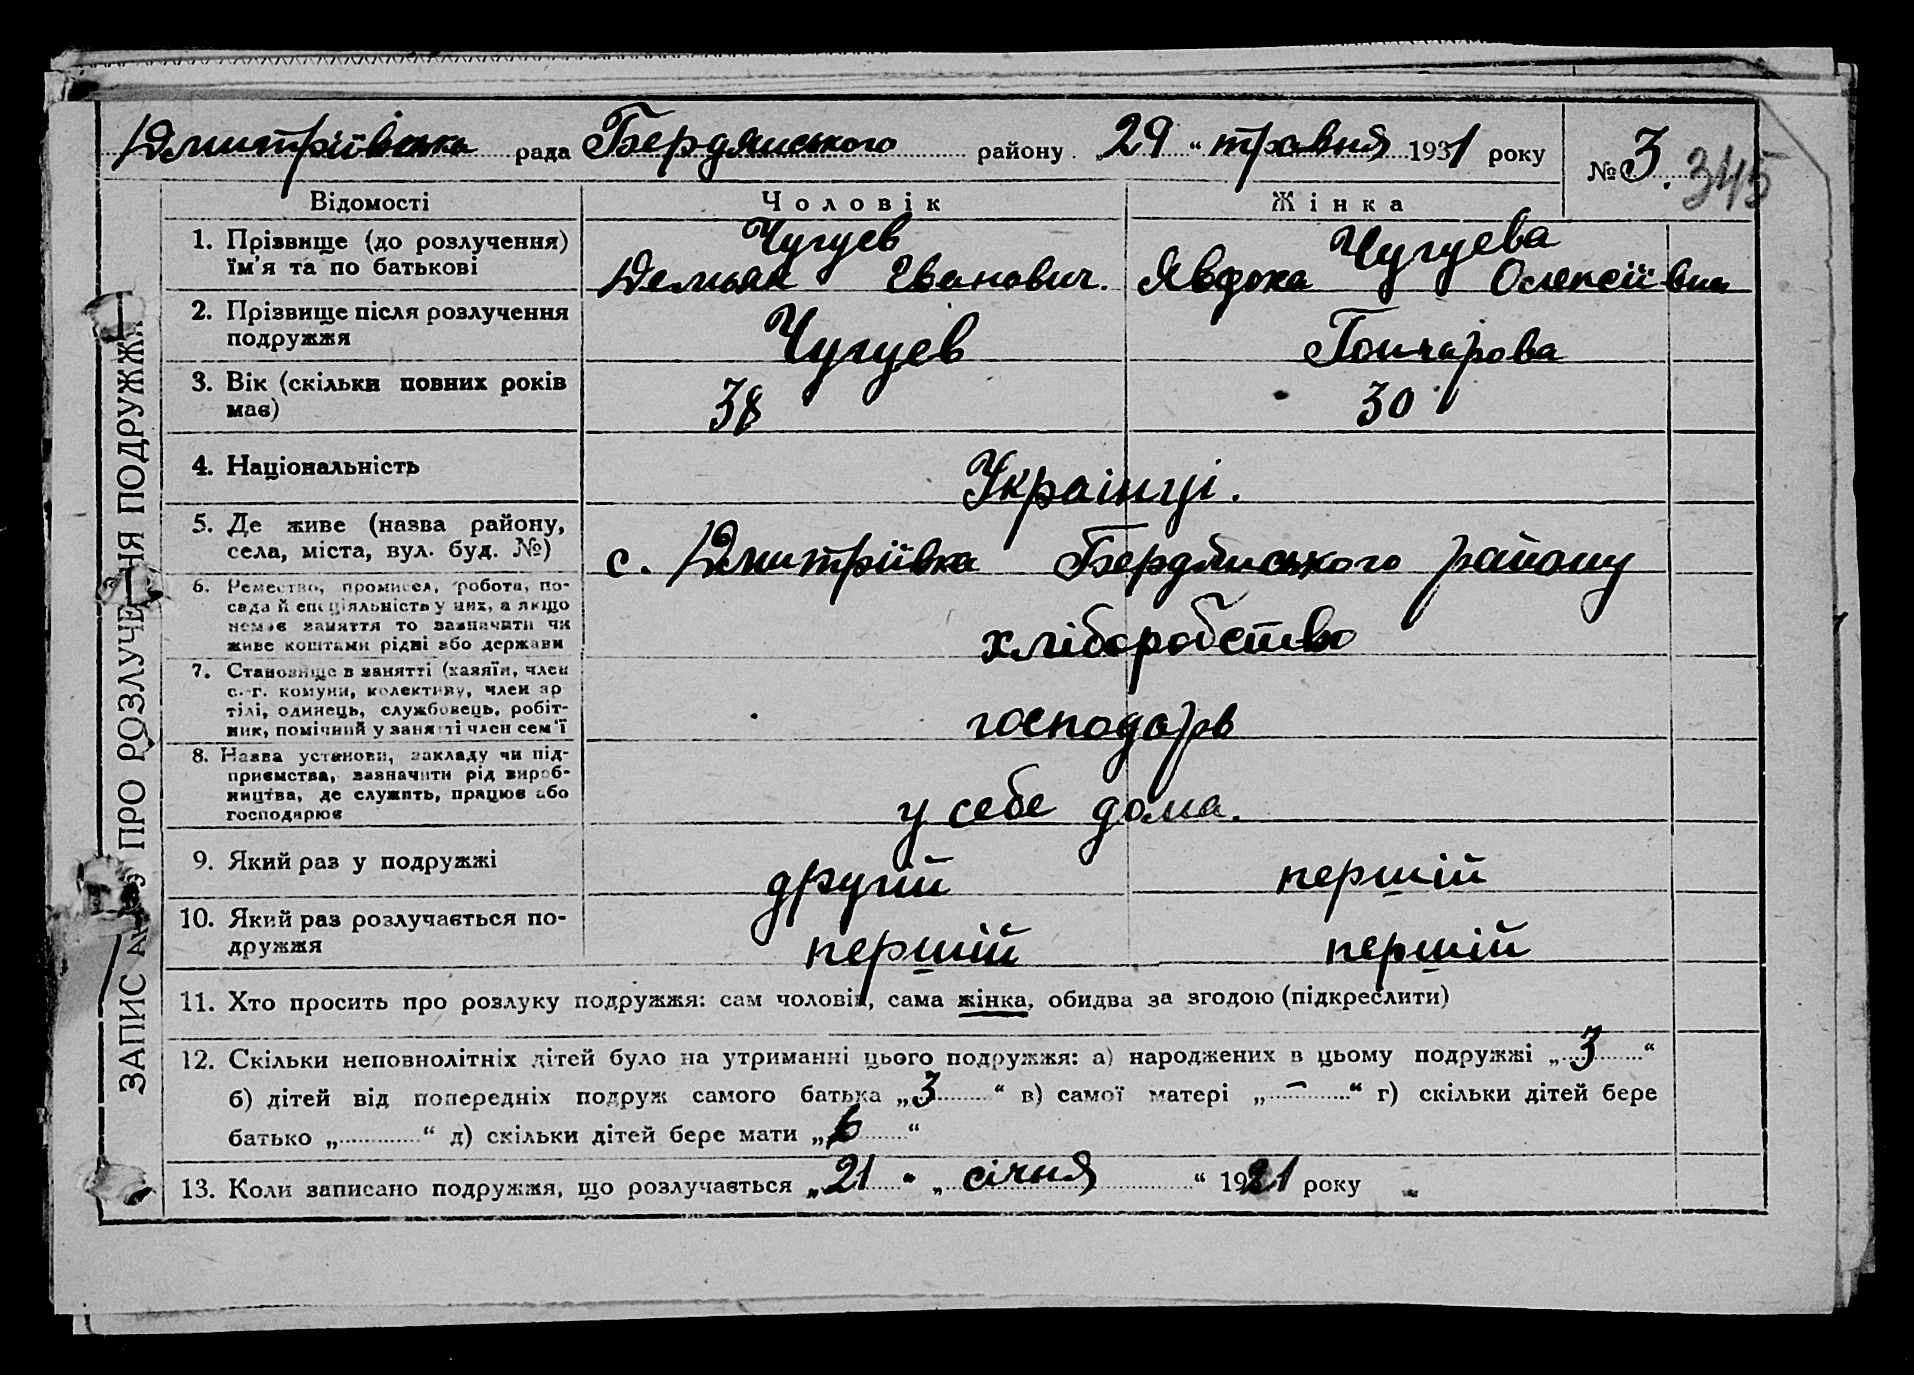 Дмитріївська рада Бердянського району „29“ травня 1931 року № 3. 345
ЗАПИС АКТУ ПРО РОЗЛУЧЕННЯ ПОДРУЖЖЯ
Відомості Чоловік Жінка
1. Прізвище (до розлучення) їм'я та по батькові
Чугуєв
Демьян Еванович.
Чугуева
Явдоха Олексіївна
2. Прізвище після розлучення подружжя
Чугуєв Гончарова
3. Вік (скільки повних років має)
38 30
4. Національність
Українці.
5. Де живе (назва району, села, міста, вул. буд. №)
с. Дмитріївка Бердянського району
6. Ремество, промисел, робота, по-
сада й спеціяльність у них, а якщо
немає заняття то зазначити чи
живе коштами рідні або держави
хліборобство
7. Становище в занятті (хазяїн, член
с.-г. комуни, колективу, член ар
тілі, одинець, службовець, робіт-
ник, помічний у занятті член сем'ї
господарь
8. Назва установи, закладу чи під-
приємства, зазначити рід вироб-
ництва, де служить, працює або
господарює
у себе дома.
9. Який раз у подружжі
другій першій
10. Який раз розлучається по-
дружжя
першій першій
11. Хто просить про розлуку подружжя: сам чоловік, сама жінка, обидва за згодою (підкреслити)
12. Скільки неповнолітніх дітей було на утриманні цього подружжя: а) народжених в цьому подружжі „3“
б) дітей від попередніх подруж самого батька „3“ в) самої матері „—“ г) скільки дітей бере
батько „......“ д) скільки дітей бере мати „6“
13. Коли записано подружжя, що розлучається „21“ „січня“ 1921 року